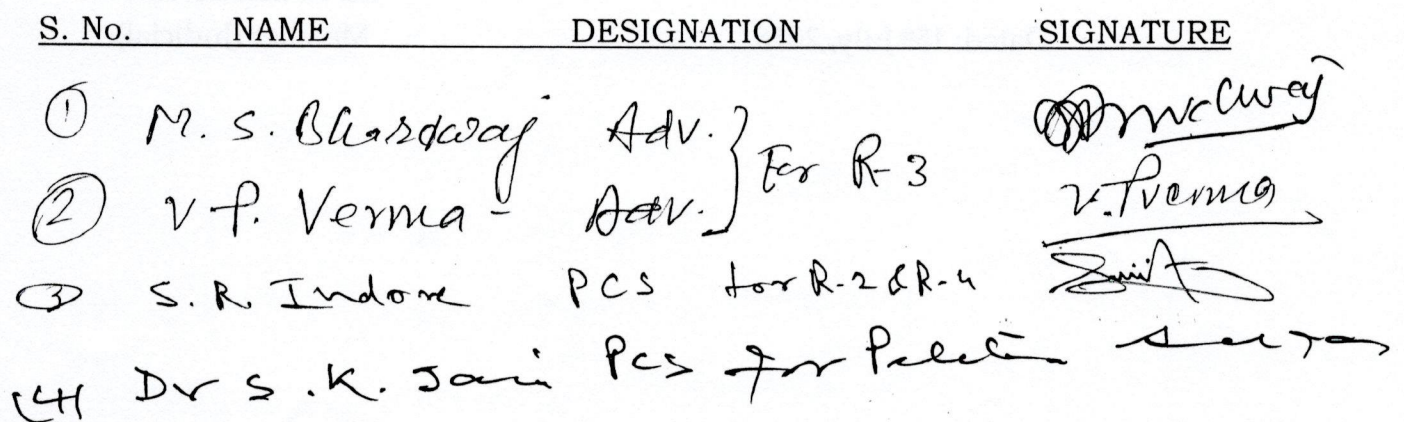 S. No. NAME DESIGNATION SIGNATURE
① M. S. Bhardwaj Adv. } For R-3
② V. P. Verma - Adv. V. P Verma
③ S. R. Indore PCS for R-2 & R-4
(4) Dr S. K. Jain PCS for